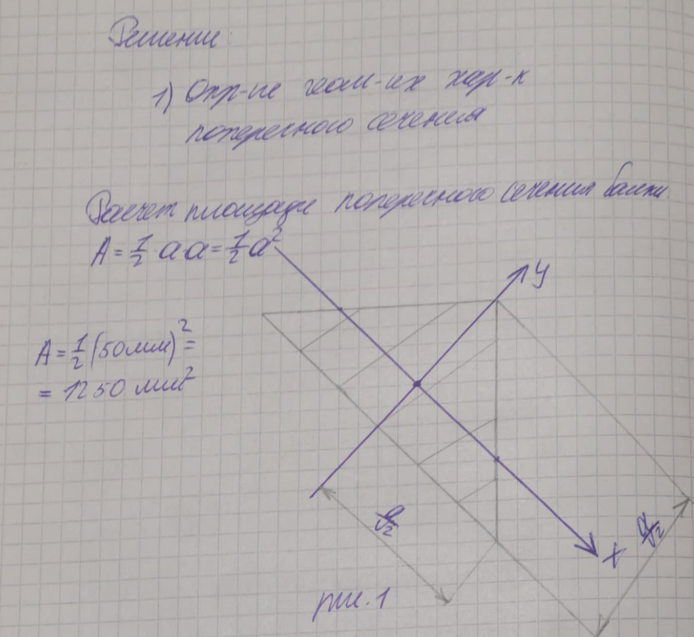 Решение:
1) Опр-ие геом-их хар-к
поперечного сечения
Расчет площади поперечного сечения балки
A = 1/2 a·a = 1/2 a²
A = 1/2 (50мм)² =
= 1250 мм²
y
x
a/2
рис. 1